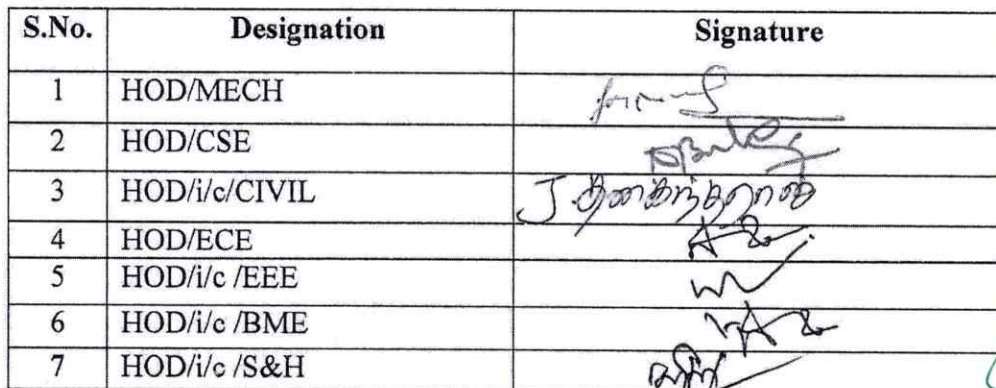 S.No. Designation Signature
1 HOD/MECH
2 HOD/CSE
3 HOD/i/c/CIVIL J.
4 HOD/ECE
5 HOD/i/c /EEE
6 HOD/i/c /BME
7 HOD/i/c /S&H